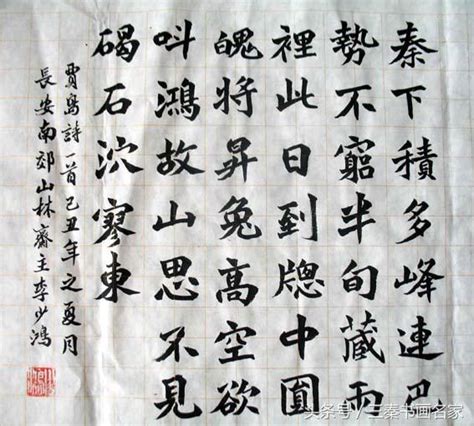 秦下積多峰連巴
勢不窮半旬藏雨
裡此日到牕中圓
魄將昇兔高空欲
叫鴻故山思不見
碣石泬寥東
賈島詩一首己丑年之夏月
長安南郊山林齋主李少鴻
头条号/三秦书画名家